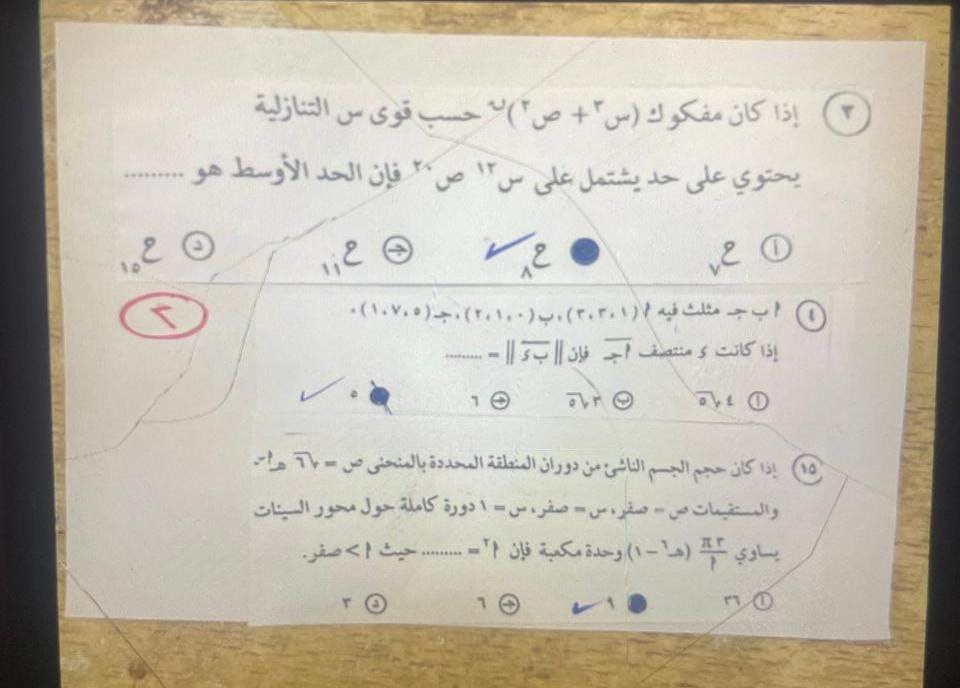 ٣ إذا كان مفكوك (س³ + ص²)ⁿ حسب قوى س التنازلية
يحتوي على حد يشتمل على س¹² ص²⁰ فإن الحد الأوسط هو .........
أ ح٧ ح٨ جـ ح١١ د ح١٥
٢
٤ أ ب جـ مثلث فيه أ (١، ٣، ٣)، ب (٠، ١، ٢)، جـ (٥، ٧، ١).
إذا كانت ء منتصف أجـ فإن || بء || = .........
أ ٤√٥ ب ٣√٥ جـ ٦ ٥
١٥ إذا كان حجم الجسم الناشئ من دوران المنطقة المحددة بالمنحنى ص = √٦ هـأس
والمستقيمات ص = صفر، س = صفر، س = ١ دورة كاملة حول محور السينات
يساوي π٣/أ (هـ⁶ - ١) وحدة مكعبة فإن أ² = ......... حيث أ > صفر.
أ ٣٦ ٩ جـ ٦ د ٣